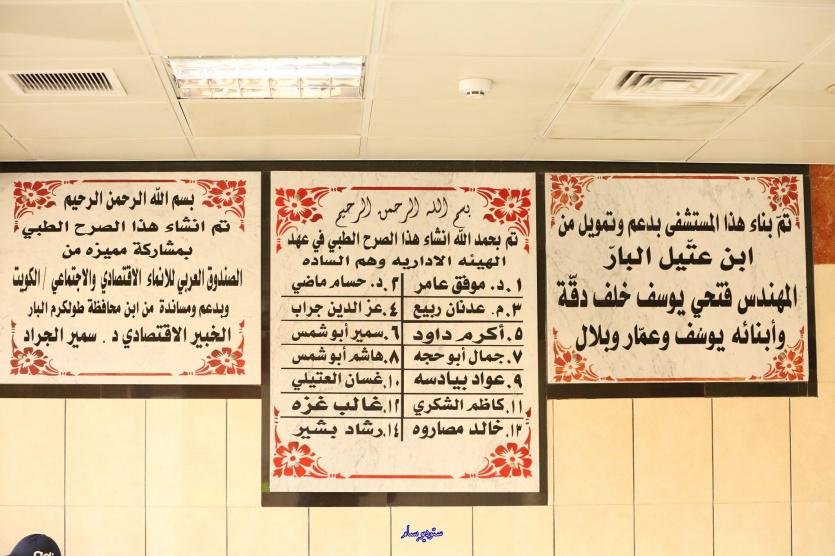 تمّ بناء هذا المستشفى بدعم وتمويل من
ابن عتّيل البارّ
المهندس فتحي يوسف خلف دقّة
وأبنائه يوسَف وعمّار وبلال
بسم الله الرحمن الرحيم
تم بحمد الله انشاء هذا الصرح الطبي في عهد
الهيئه الاداريه وهم الساده
١. د. موفق عامر
٢. د. حسام ماضي
٣. م. عدنان ربيع
٤. عز الدين جراب
٥. أكرم داود
٦. سمير أبو شمس
٧. جمال أبو حجه
٨. هاشم أبو شمس
٩. عواد بيادسه
١٠. غسان العتيلي
١١. كاظم الشكري
١٢. غالب غزه
١٣. خالد مصاروه
١٤. رشاد بشير
بسم الله الرحمن الرحيم
تم انشاء هذا الصرح الطبي
بمشاركة مميزه من
الصندوق العربي للانماء الاقتصادي والاجتماعي / الكويت
وبدعم ومساندة من ابن محافظة طولكرم البار
الخبير الاقتصادي د . سمير الجراد
ستوديو بسام